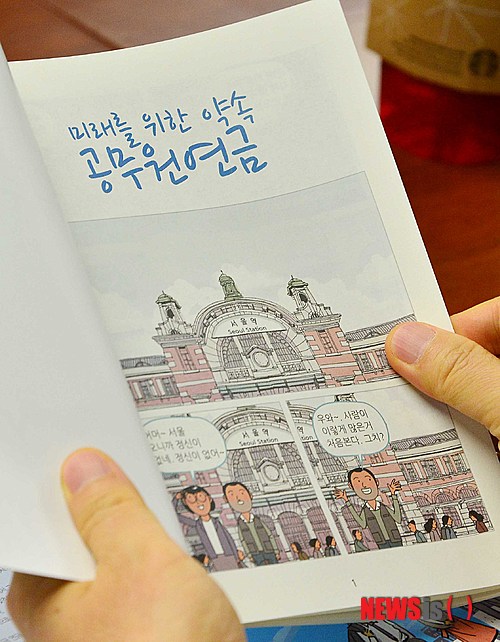 미래를 위한 약속
공무원연금
서울역
Seoul Station
서울역
Seoul Station
서울
오니까 정신이
없네. 정신이 없어~
우와~ 사람이
이렇게 많은거
처음본다. 그치?
1
NEWSis( )